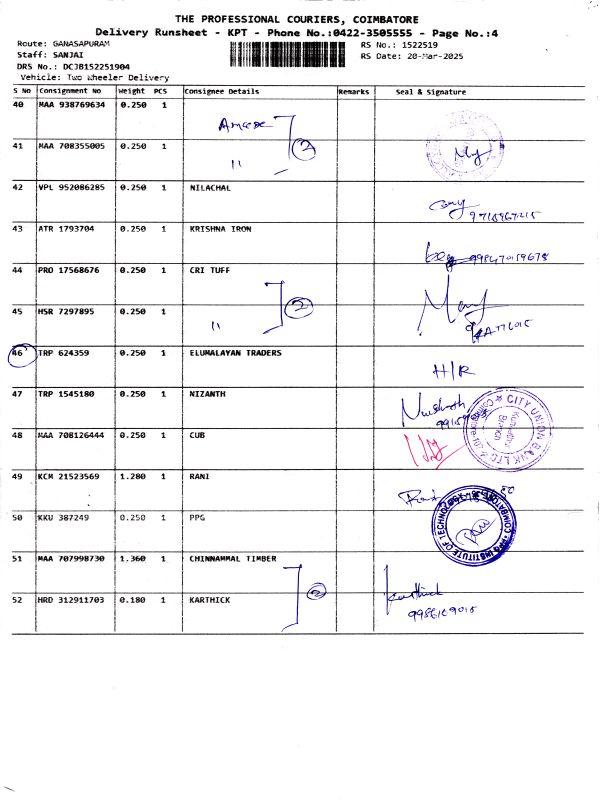 THE PROFESSIONAL COURIERS, COIMBATORE
Delivery Runsheet - KPT - Phone No.:0422-3505555 - Page No.:4
Route: GANASAPURAM RS No.: 1522519
Staff: SANJAI RS Date: 20-Mar-2025
DRS No.: DCJB152251904
Vehicle: Two Wheeler Delivery
S No Consignment No Weight PCS Consignee Details Remarks Seal & Signature
40 MAA 938769634 0.250 1
2
41 MAA 708355005 0.250 1 "
42 VPL 952086285 0.250 1 NILACHAL
43 ATR 1793704 0.250 1 KRISHNA IRON
44 PRO 17568676 0.250 1 CRI TUFF
2
45 HSR 7297895 0.250 1 "
46 TRP 624359 0.250 1 ELUMALAYAN TRADERS H/R
47 TRP 1545180 0.250 1 NIZANTH
CITY UNION BANK LTD
48 MAA 708126444 0.250 1 CUB
49 KCM 21523569 1.280 1 RANI
50 KKU 387249 0.250 1 PPG
INSTITUTE OF TECHNOLOGY
51 MAA 707998730 1.360 1 CHINNAMMAL TIMBER
2
52 HRD 312911703 0.180 1 KARTHICK Karthick